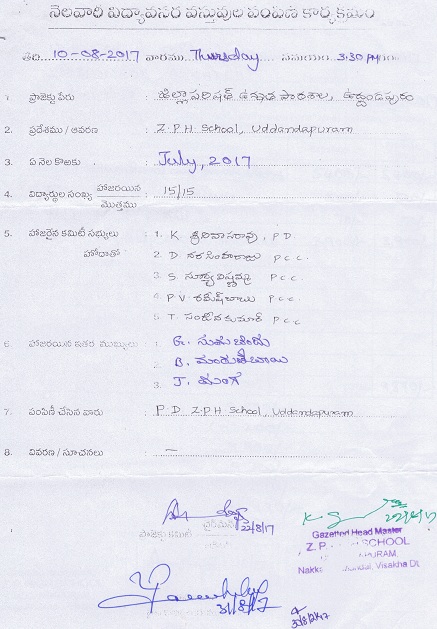 నెలవారి విద్యావసర వస్తువుల పంపిణి కార్యక్రమం
తేది 10-08-2017 వారము Thursday సమయం 3:30 PM
1. ప్రాజెక్టు పేరు : జిల్లా పరిషత్ ఉన్నత పాఠశాల, ఉద్దండపురం
2. ప్రదేశము / ఆవరణ : Z.P.H School, Uddandapuram
3. ఏ నెల కొఱకు : July, 2017
4. విద్యార్థుల సంఖ్య హాజరయిన / మొత్తము : 15/15
5. హాజరైన కమిటీ సభ్యులు : 1. K శ్రీనివాసరావు, P.D
హోదాతో : 2. D నరసింహరాజు P.C.C.
3. S P.C.C.
4. P.V రమేష్ బాబు P.C.C.
5. T. సంతోష్ కుమార్ P.C.C
6. హాజరయిన ఇతర ముఖ్యులు : 1. G.
2. B.
3. J. దుంగ
7. పంపిణీ చేసిన వారు : P.D Z.P.H School, Uddandapuram
8. వివరణ / సూచనలు : —
చైర్మన్ 22/8/17
ప్రాజెక్టు కమిటీ
Gazetted Head Master
Z.P. SCHOOL
Visakha Dt
31/8/17